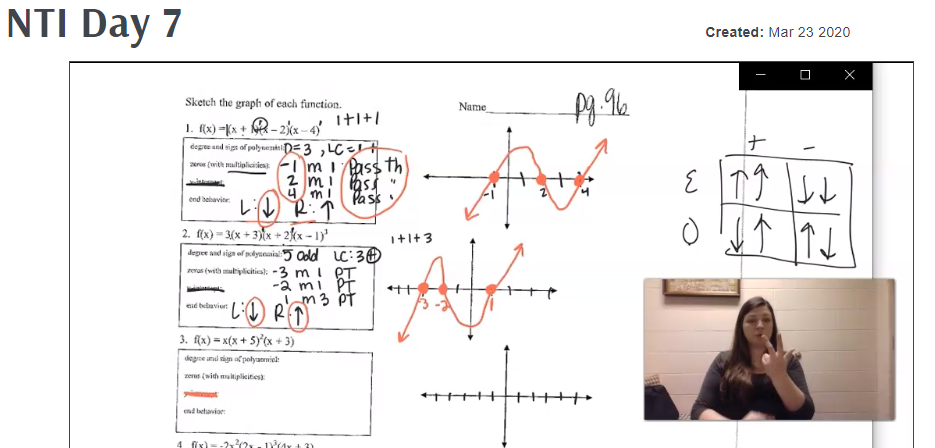 NTI Day 7
Created: Mar 23 2020
Sketch the graph of each function.
Name
pg. 96
1. f(x) = 1(x + 1)(x - 2)(x - 4)
1+1+1
degree and sign of polynomial: D=3, LC=1 +
zeros (with multiplicities): -1 m 1 Pass Th
2 m 1 Pass "
4 m 1 Pass "
end behavior: L: ↓ R: ↑
-1 2 4
+ -
E ↑↑ ↓↓
O ↓↑ ↑↓
2. f(x) = 3(x + 3)(x + 2)(x - 1)³
1+1+3
degree and sign of polynomial: 5 odd LC: 3 +
zeros (with multiplicities): -3 m 1 PT
-2 m 1 PT
1 m 3 PT
end behavior: L: ↓ R: ↑
-3 -2 1
3. f(x) = x(x + 5)²(x + 3)
degree and sign of polynomial:
zeros (with multiplicities):
end behavior: